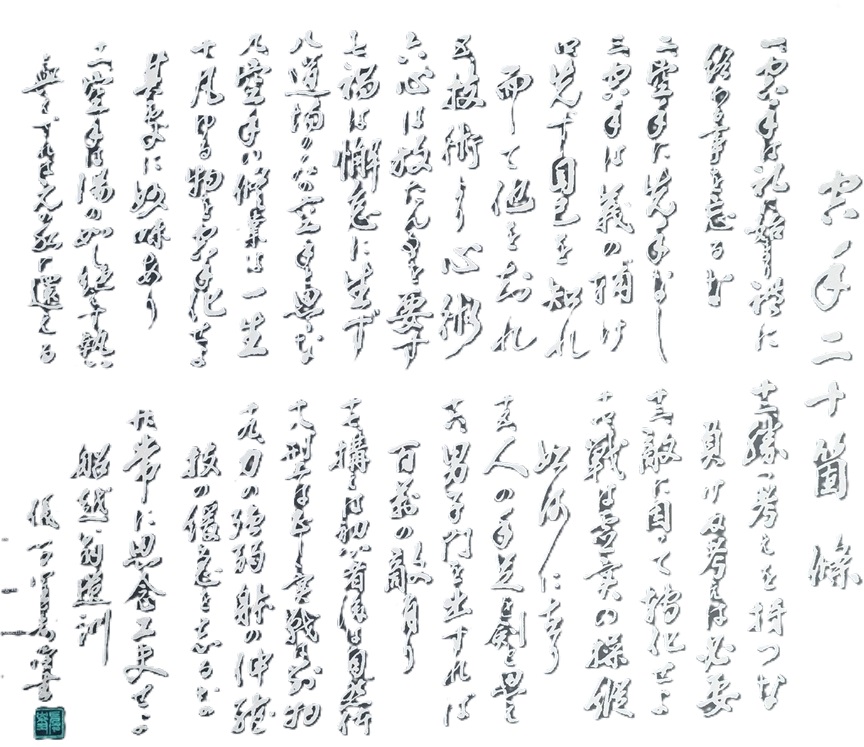 空手二十箇條
一 空手は礼に始り禮に
終わる事を忘るな
二 空手に先手なし
三 空手は義の補け
四 先づ自己を知れ
而して他を知れ
五 技術より心術
六 心は放たん事を要す
七 禍は懈怠に生ず
八 道場のみの空手と思ふな
九 空手の修業は一生
十 凡ゆる物を空手化せよ
其処に妙味あり
十一 空手は湯の如し絶えず熱
元の水に還える
十二 勝つ考えを持つな
負けぬ考えは必要
十三 敵に因って轉化せよ
十四 戦は虚実の操縦
如何に在り
十五 人の手足を剣と思へ
十六 男子門を出づれば
百萬の敵有り
十七 構は初心者後は自然体
十八 型は正しく実戦は別物
十九 力の強弱体の伸縮
技の緩急を忘るな
二十 常に思念工夫せよ
船越 訓